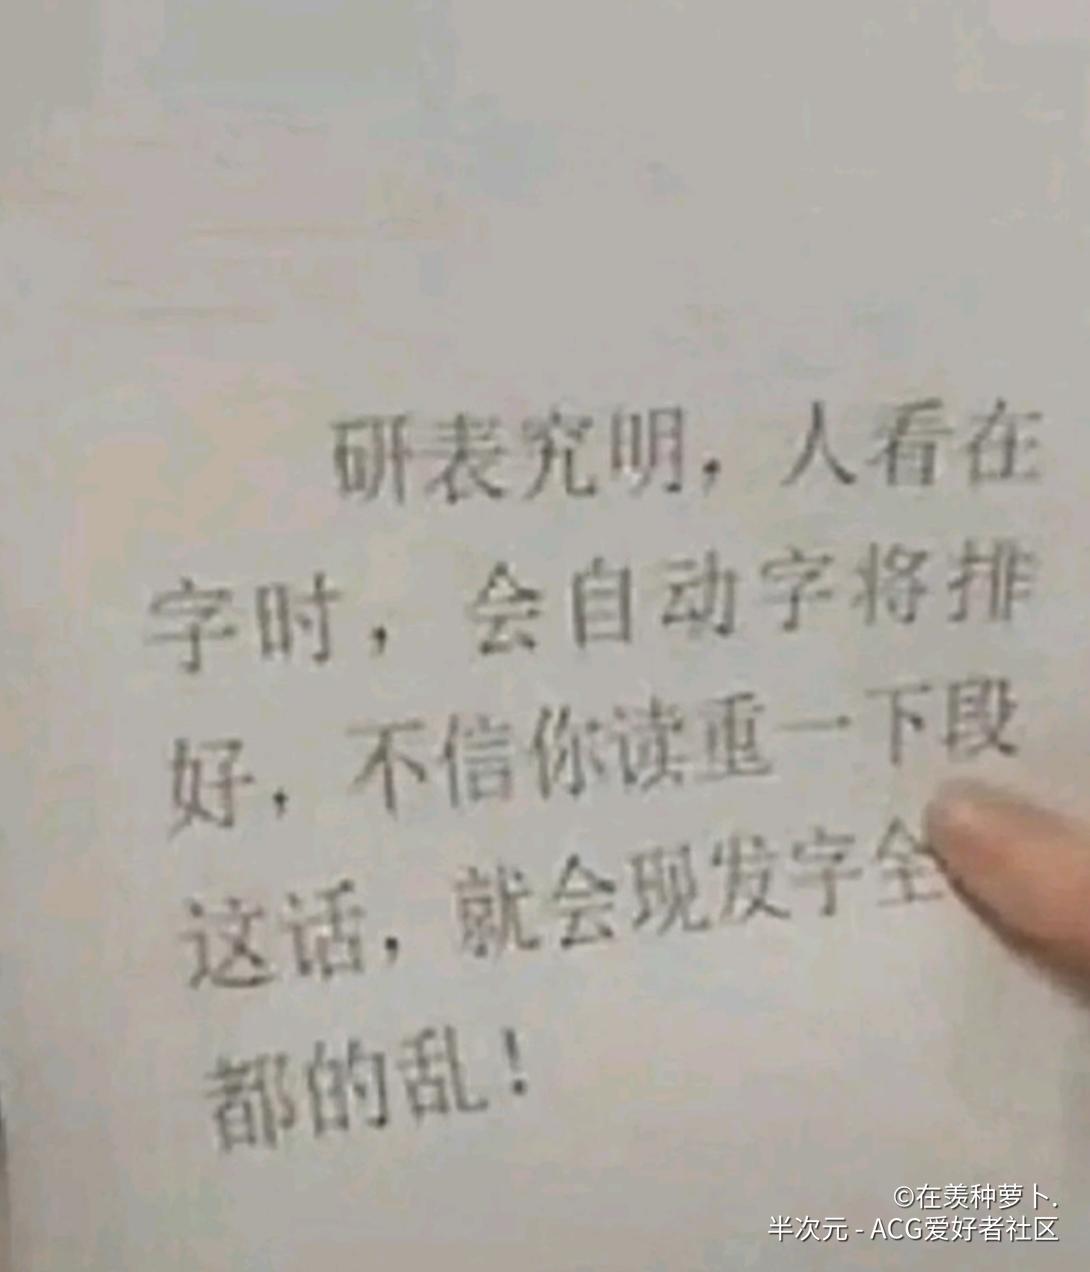 研表究明，人看在
字时，会自动字将排
好，不信你读重一下段
这话，就会现发字全
都的乱！
©在羡种萝卜.
半次元 - ACG爱好者社区